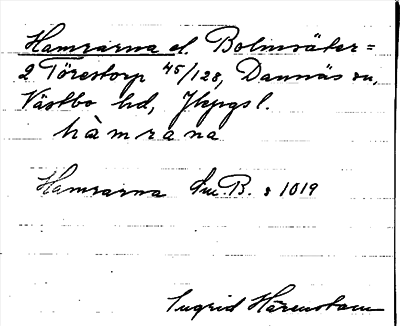 Hamrarna el. Bolmsäter=
2 Törestorp 45/128, Dannäs sn,
Västbo hd, Jkpgs l.
hàmrana
Hamrarna Sve B. s 1019
Ingrid Härenstam